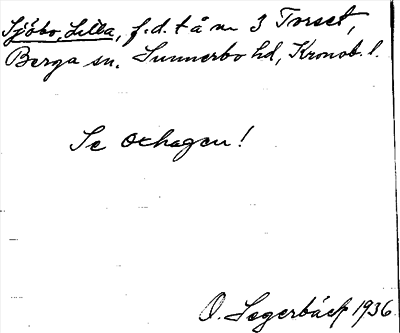 Sjöbo, Lilla, f.d. t å n:o 3 Torset,
Berga sn. Sunnerbo hd, Kronob. l.
Se Oxhagen!
O. Segerbäck 1936